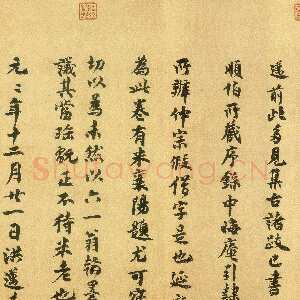 邁前此多見集古諸跋已書
順伯所藏序錄中晦庵引隸
所辯仲宗假借字是也延
為此卷有米襄陽題尤可寶
切以為未然以六一翁翰墨
議其當珍玩正不待米老也
元二年十二月廿一日洪邁